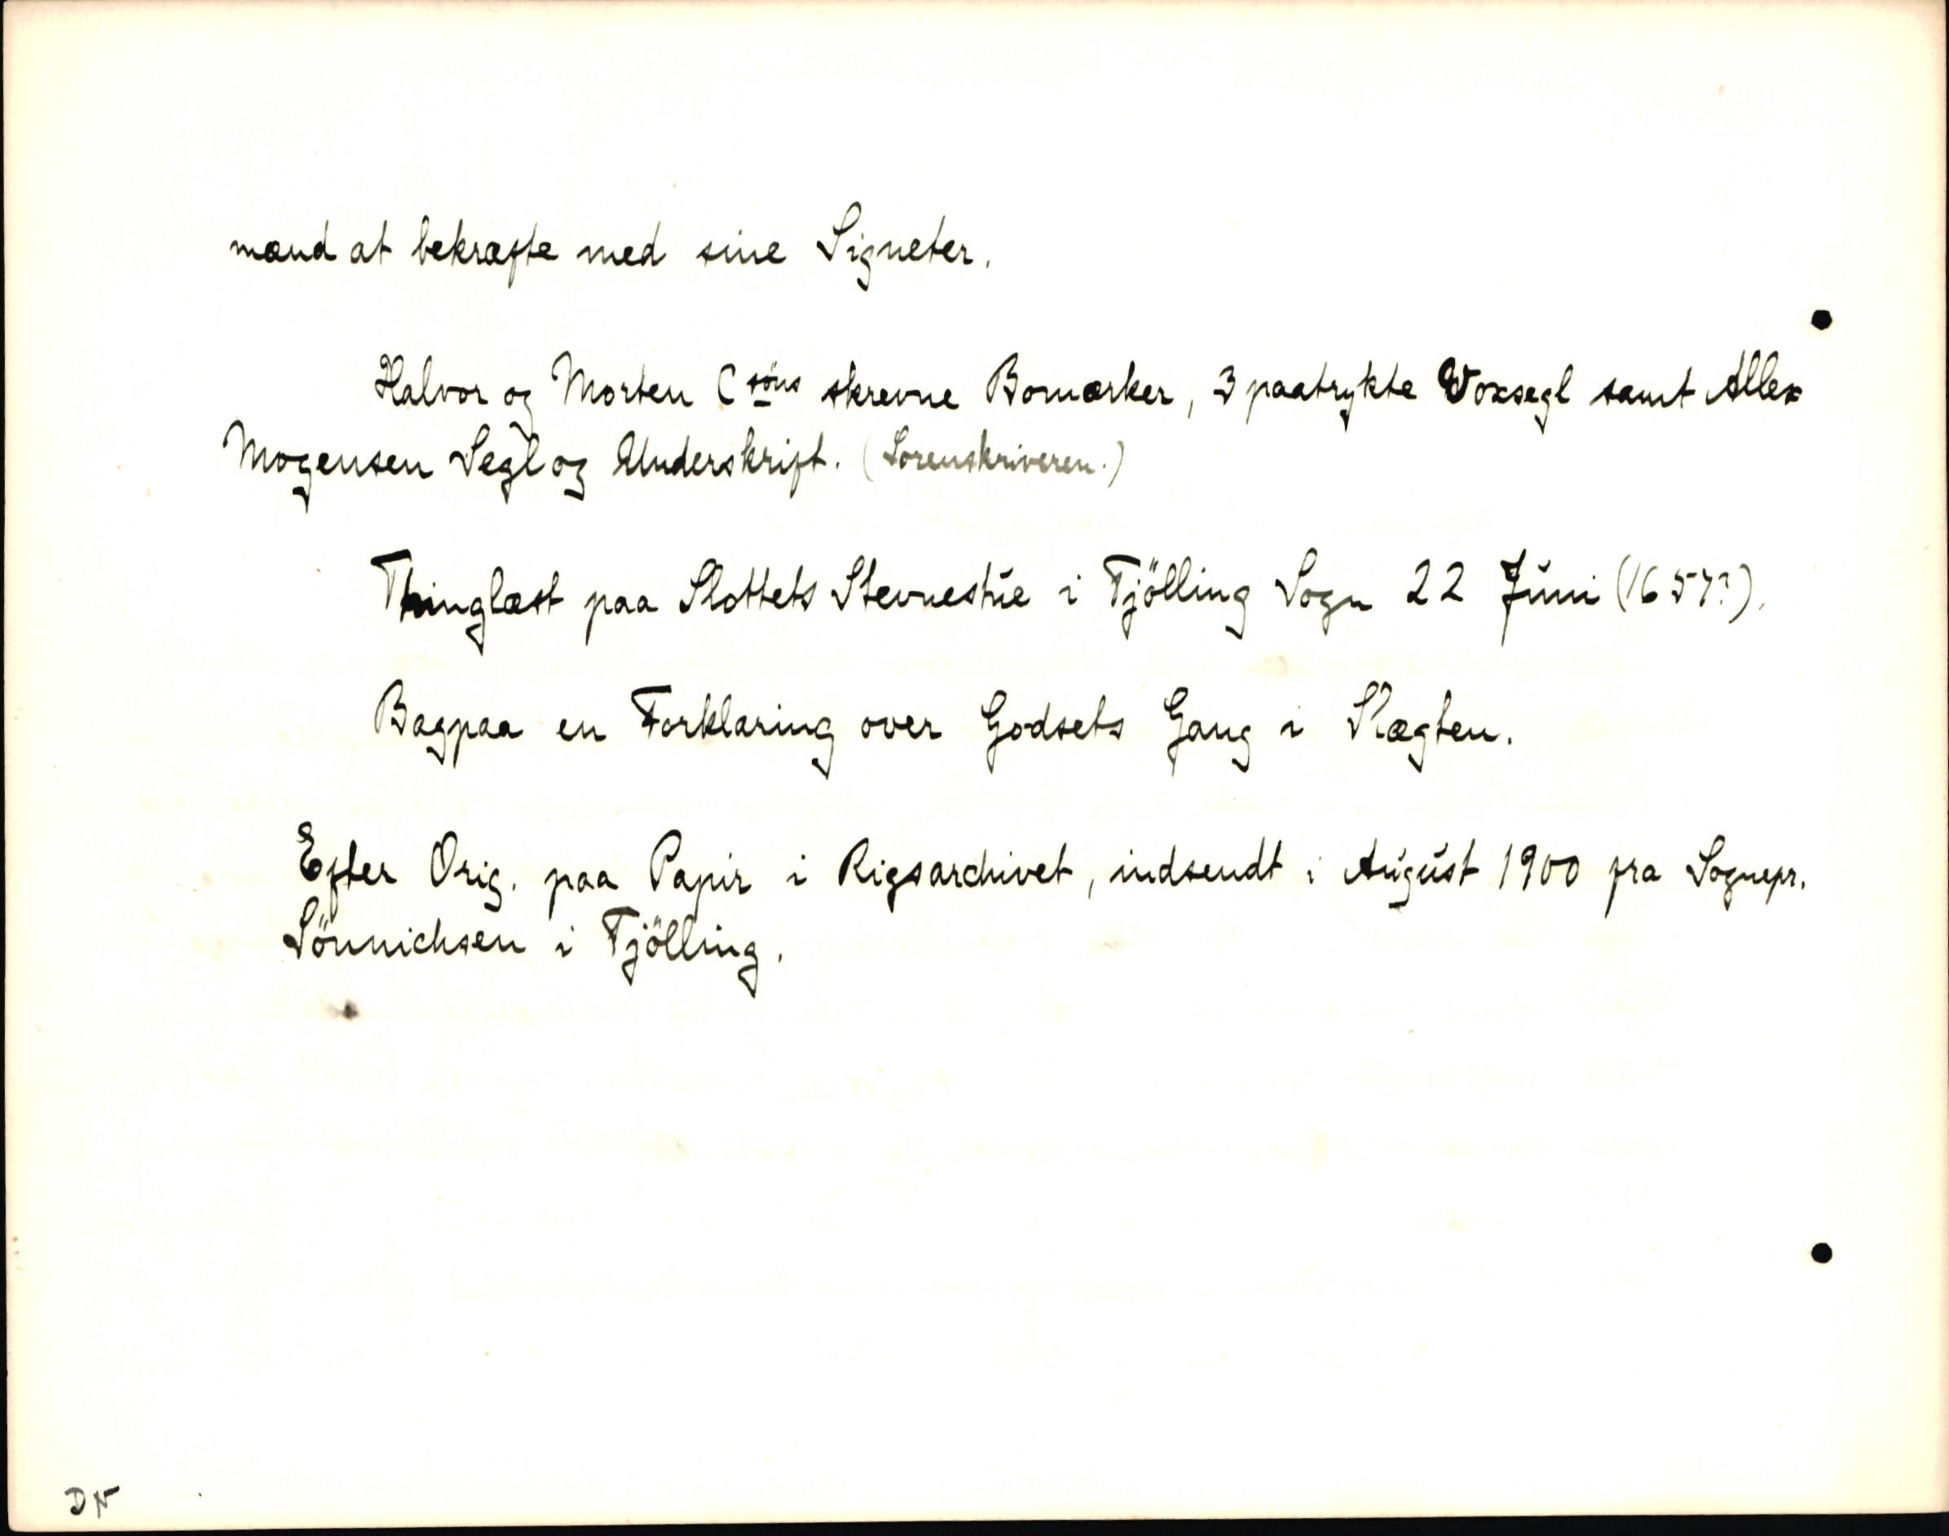 mænd at bekræfte med sine Signeter.
Halvor og Morten C söns skrevne Bomærker, 3 paatrykte Voxsegl samt Allex
Mogensen Segl og Underskrift. (Sorenskriveren.)
Thinglæst paa Slottets Stevnestue i Tjölling Sogn 22 Juni (1657?).
Bagpaa en Forklaring over Godsets Gang i Slægten.
Efter Orig. paa Papir i Rigsarchivet, indsendt i August 1900 fra Sognepr.
Sönnichsen i Tjölling.
DN